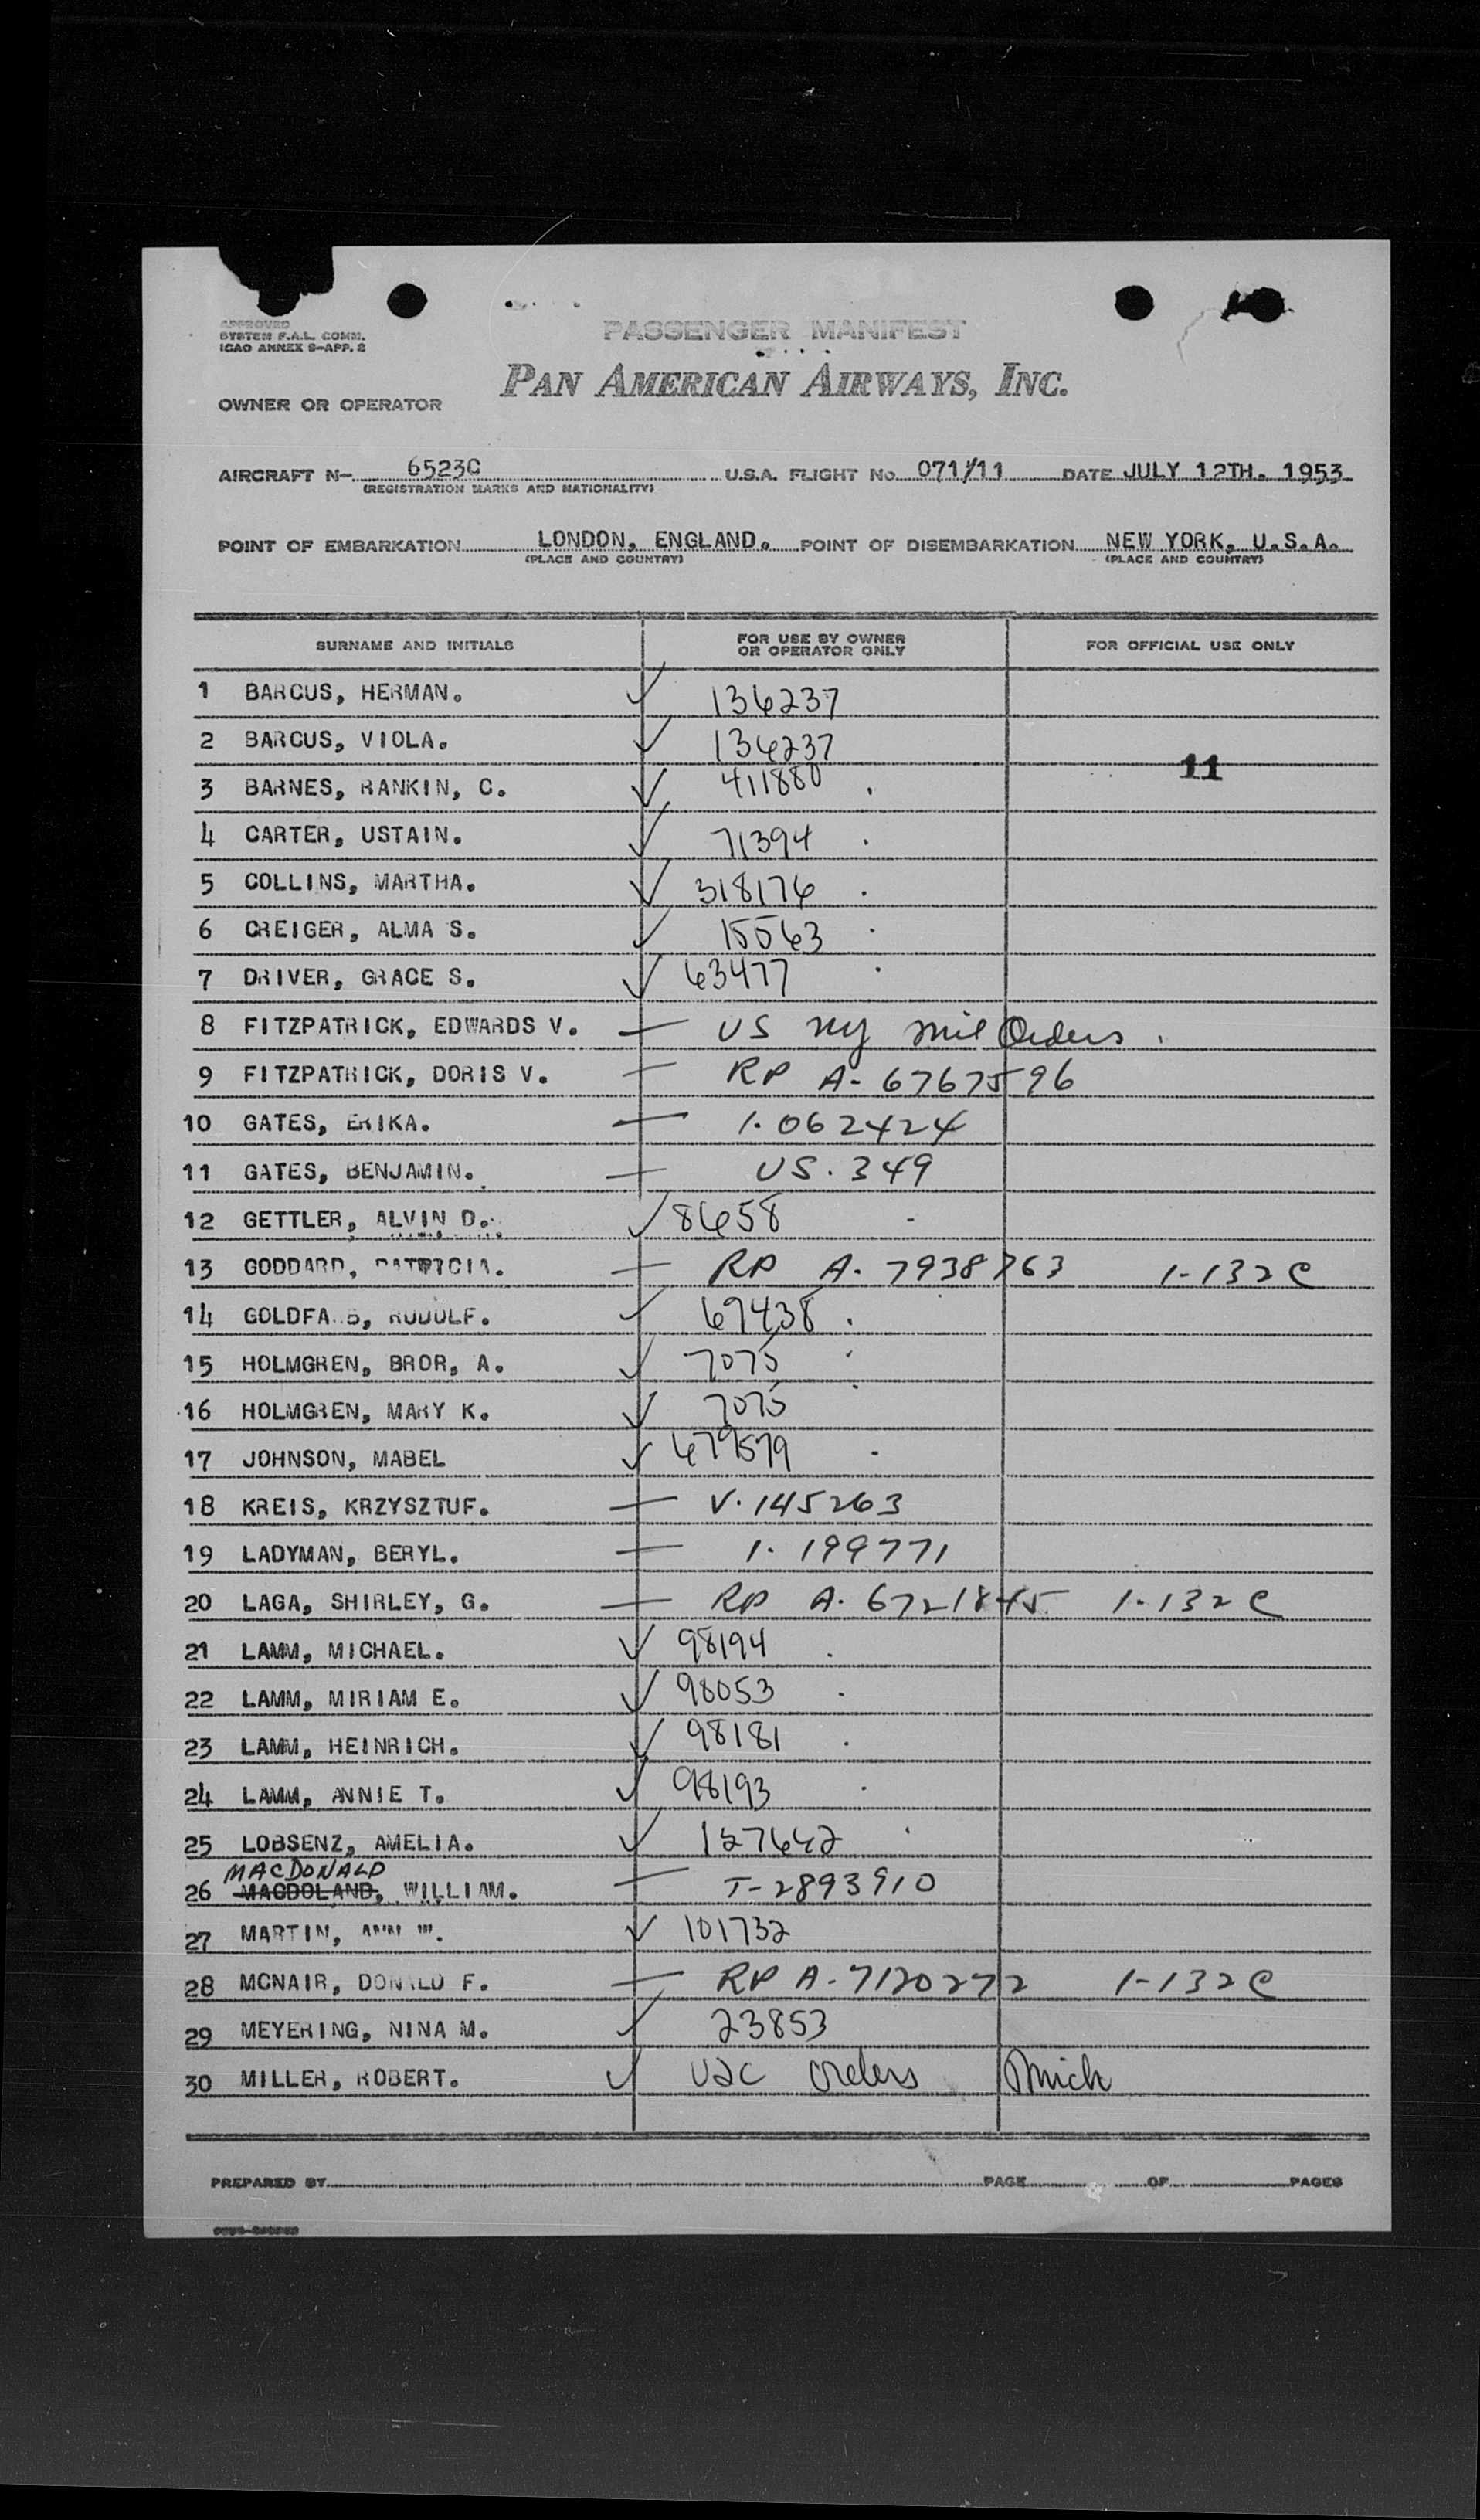 APPROVED
SYSTEM F.A.L. COMM.
ICAO ANNEX 9-APP. 2
PASSENGER MANIFEST
PAN AMERICAN AIRWAYS, INC.
OWNER OR OPERATOR
AIRCRAFT N- 6523C U.S.A. FLIGHT No. 071/11 DATE JULY 12TH. 1953
(REGISTRATION MARKS AND NATIONALITY)
POINT OF EMBARKATION LONDON, ENGLAND. POINT OF DISEMBARKATION NEW YORK, U.S.A.
(PLACE AND COUNTRY) (PLACE AND COUNTRY)
SURNAME AND INITIALS FOR USE BY OWNER OR OPERATOR ONLY FOR OFFICIAL USE ONLY
1 BARCUS, HERMAN. ✓ 136237
2 BARCUS, VIOLA. ✓ 136237
11
3 BARNES, RANKIN, C. ✓ 411880
4 CARTER, USTAIN. ✓ 71394
5 COLLINS, MARTHA. ✓ 318176
6 CREIGER, ALMA S. ✓ 15563
7 DRIVER, GRACE S. ✓ 63477
8 FITZPATRICK, EDWARDS V. — US NY Mil Orders
9 FITZPATRICK, DORIS V. — RP A-6767596
10 GATES, ERIKA. — 1.062424
11 GATES, BENJAMIN. — US. 349
12 GETTLER, ALVIN D. ✓ 8658
13 GODDARD, PATRICIA. — RP A-7938763 1-132C
14 GOLDFA B, RUDOLF. ✓ 69438
15 HOLMGREN, BROR, A. ✓ 7075
16 HOLMGREN, MARY K. ✓ 7075
17 JOHNSON, MABEL ✓ 679579
18 KREIS, KRZYSZTUF. — V.145263
19 LADYMAN, BERYL. — 1.199771
20 LAGA, SHIRLEY, G. — RP A.6721845 1-132C
21 LAMM, MICHAEL. ✓ 98194
22 LAMM, MIRIAM E. ✓ 98053
23 LAMM, HEINRICH. ✓ 98181
24 LAMM, ANNIE T. ✓ 98193
25 LOBSENZ, AMELIA. ✓ 127642
MACDONALD
26 MACDOLAND, WILLIAM. — T-2893910
27 MARTIN, ANN W. ✓ 101732
28 MCNAIR, DONALD F. — RP A-7120272 1-132C
29 MEYERING, NINA M. ✓ 23853
30 MILLER, ROBERT. ✓ USC Orders Mich
PREPARED BY PAGE OF PAGES